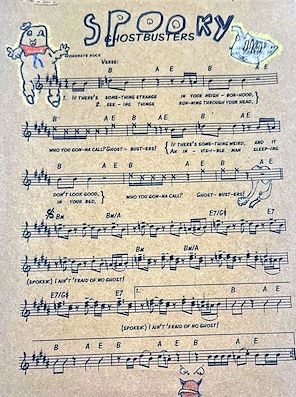 SPOOKY
GHOSTBUSTERS
MODERATE ROCK
VERSE:
B A E B A E
1. IF THERE'S SOME-THING STRANGE IN YOUR NEIGH-BOR-HOOD,
2. SEE-ING THINGS RUN-NING THROUGH YOUR HEAD,
B A E B A E
WHO YOU GON-NA CALL? GHOST-BUST-ERS! IF THERE'S SOME-THING WEIRD, AND IT
AN IN-VIS-I-BLE MAN SLEEP-ING
B A E B A E
DON'T LOOK GOOD, WHO YOU GON-NA CALL? GHOST-BUST-ERS!
IN YOUR BED,
Bm Bm/A E7/G# E
Bm Bm/A
(SPOKEN:) I AIN'T 'FRAID OF NO GHOST!
E7/G# E7 1.
(SPOKEN:) I AIN'T 'FRAID OF NO GHOST!
B A E B A E